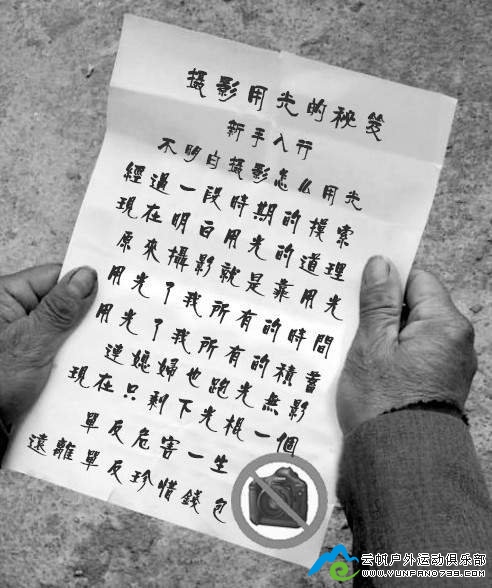 攝影用光的秘笈
新手入行
不明白攝影怎么用光
經過一段時期的摸索
現在明白用光的道理
原來攝影就是靠用光
用光了我所有的時間
用光了我所有的積蓄
連媳婦也跑光無影
現在只剩下光棍一個
單反危害一生
遠離單反珍惜錢包
云帆户外运动俱乐部
WWW.YUNFAN0799.COM